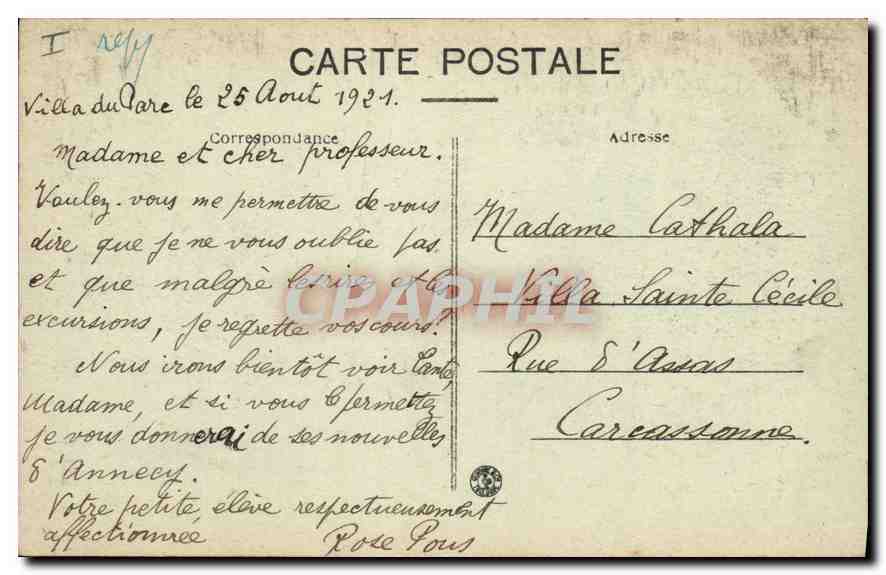 I
CARTE POSTALE
Villa du Parc le 25 Aout 1921.
Correspondance
Madame et cher professeur.
Voulez-vous me permettre de vous
dire que je ne vous oublie pas
et que malgré les rires et les
excursions, je regrette vos cours!
Nous irons bientôt voir Tante,
Madame, et si vous le permettez
je vous donnerai de ses nouvelles
d'Annecy.
Votre petite élève respectueusement
affectionnée
Rose Pous
Adresse
Madame Cathala
Villa Sainte Cécile
Rue d'Assas
Carcassonne.
CPAPHIL